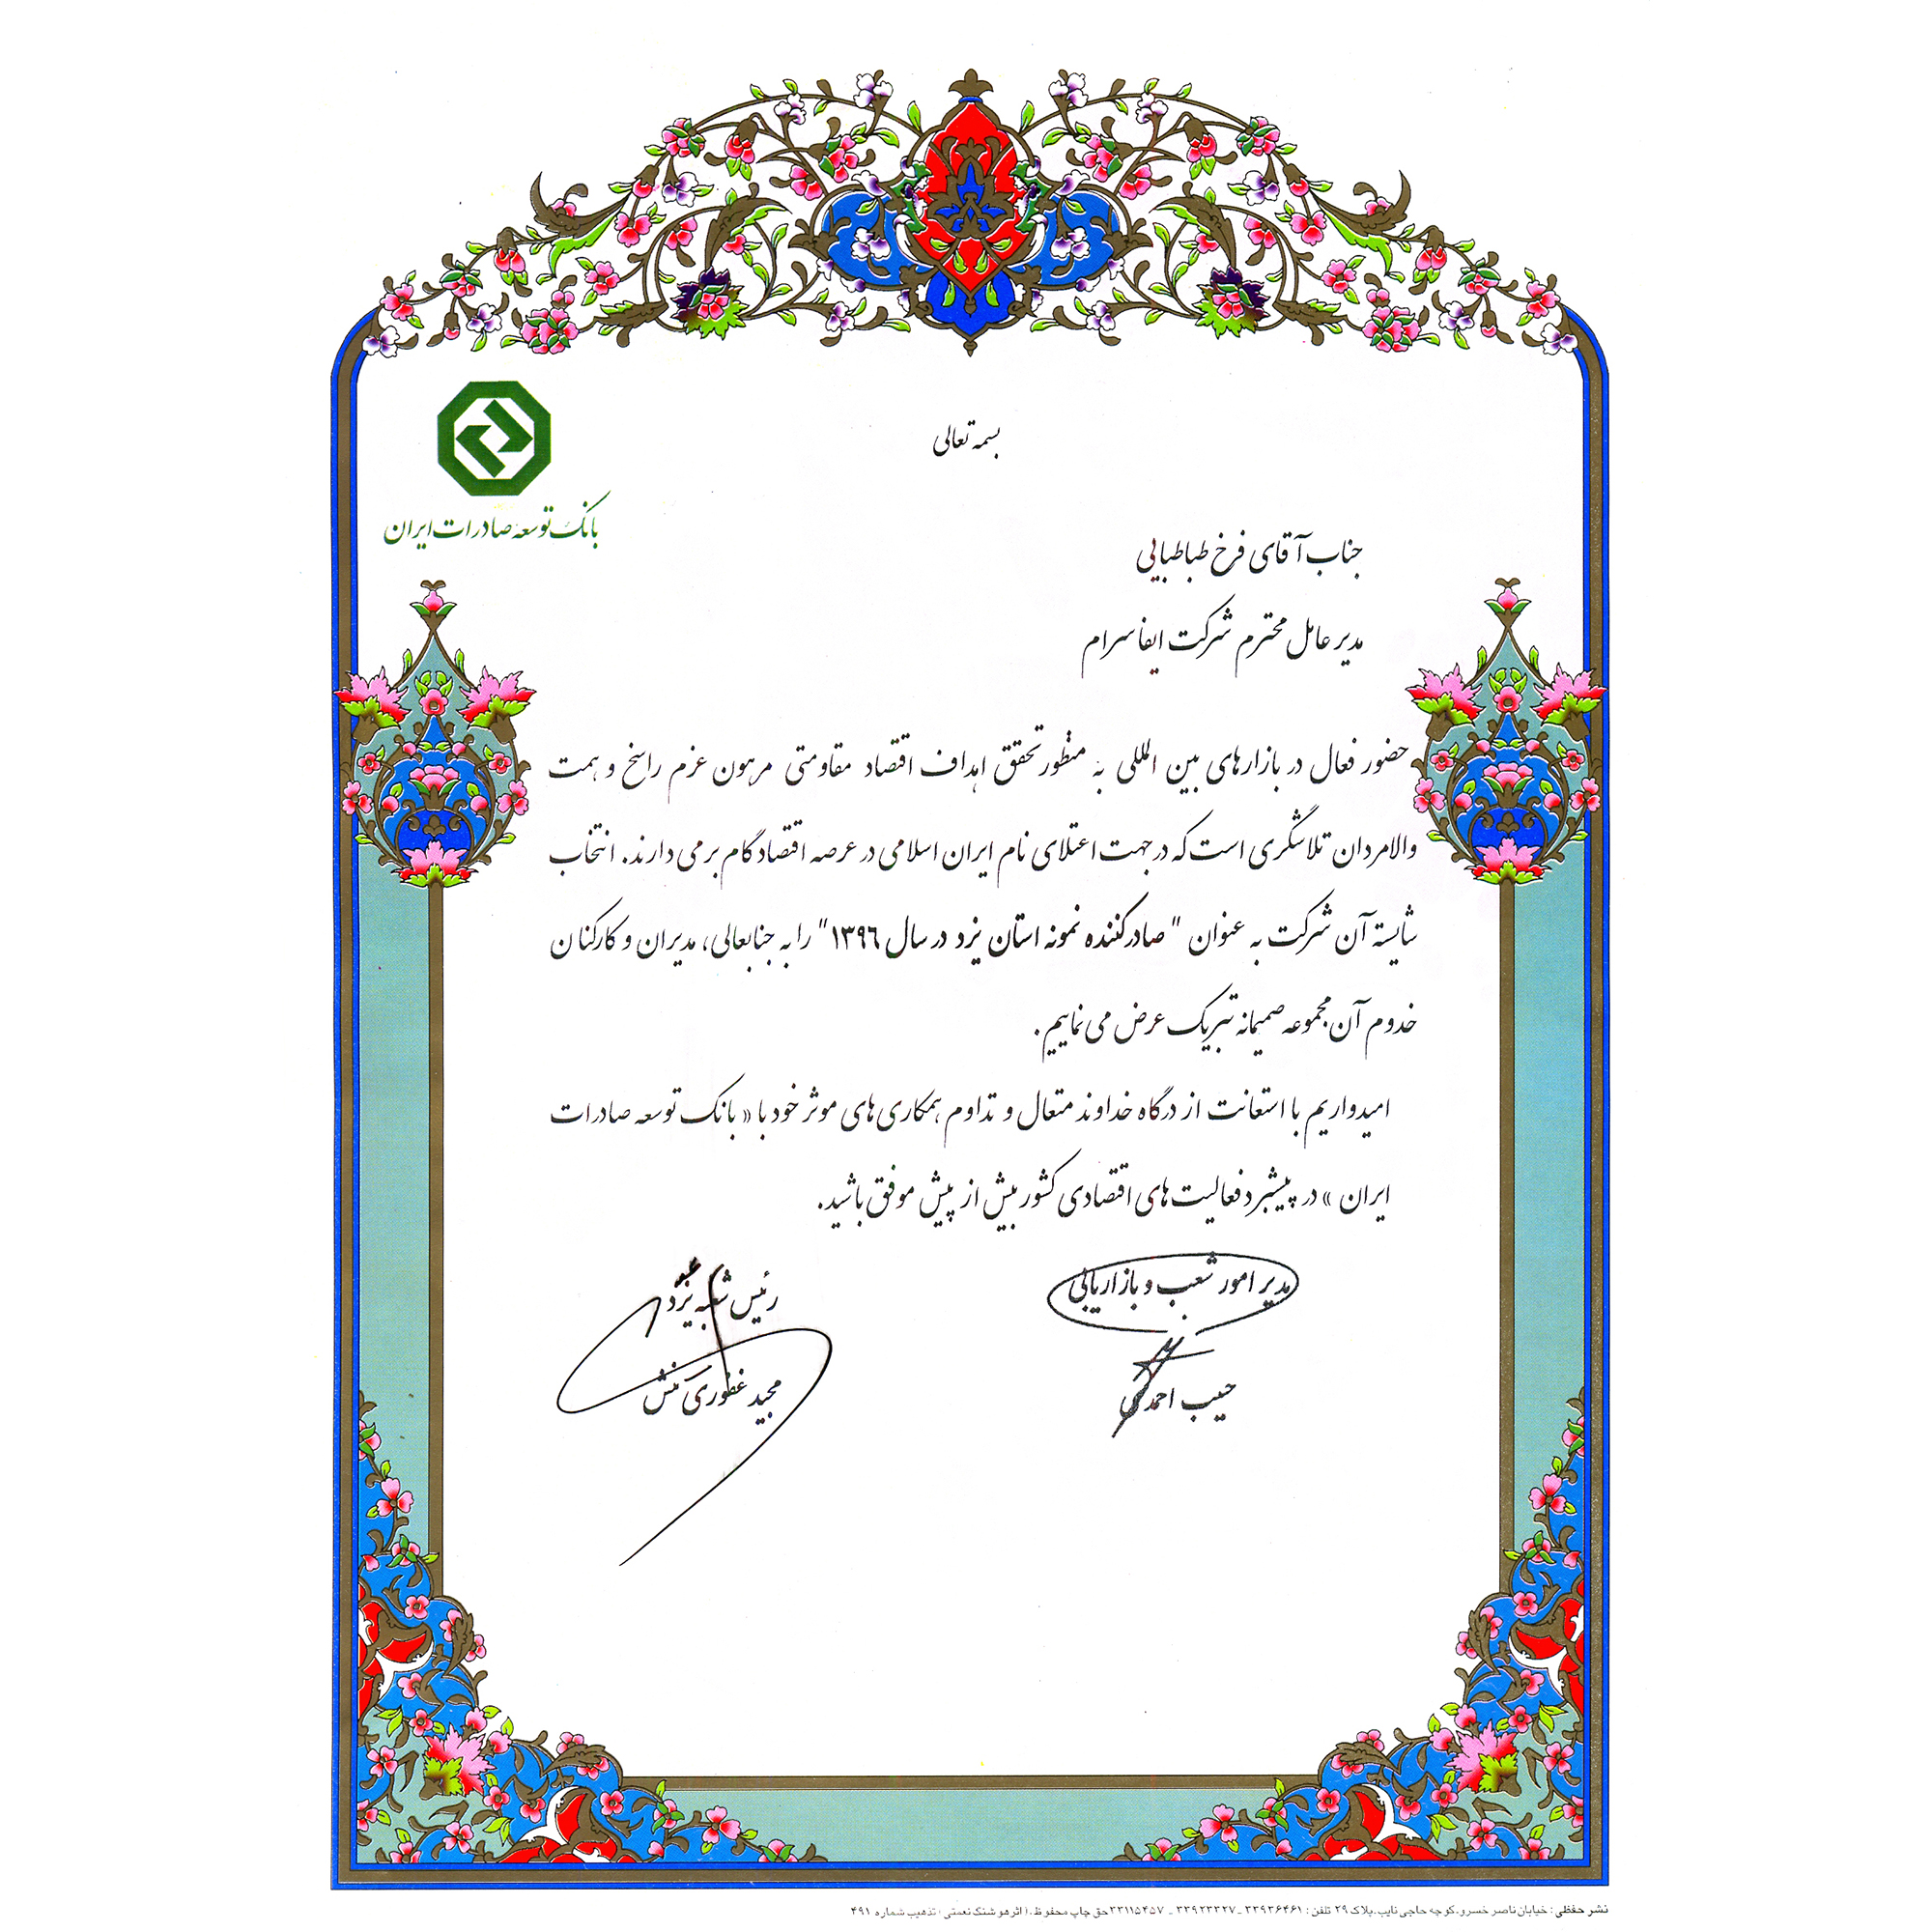 بسمه تعالی
بانک توسعه صادرات ایران
جناب آقای فرخ طباطبایی
مدیر عامل محترم شرکت ایفا سرام
حضور فعال در بازارهای بین المللی به منظور تحقق اهداف اقتصاد مقاومتی مرهون عزم راسخ و همت
والامردان تلاشگری است که در جهت اعتلای نام ایران اسلامی در عرصه اقتصاد گام بر می دارند. انتخاب
شایسته آن شرکت به عنوان "صادرکننده نمونه استان یزد در سال ۱۳۹۶" را به جنابعالی، مدیران و کارکنان
خدوم آن مجموعه صمیمانه تبریک عرض می نماییم.
امیدواریم با استعانت از درگاه خداوند متعال و تداوم همکاری های موثر خود با «بانک توسعه صادرات
ایران» در پیشبرد فعالیت های اقتصادی کشور بیش از پیش موفق باشید.
مدیر امور شعب و بازاریابی
رئیس شعبه یزد
حبیب احمدی
مجید غفوری منش
نشر حفظی : خیابان ناصر خسرو.کوچه حاجی نایب.پلاک ۲۹ تلفن : ۳۳۹۳۶۴۶۱ ـ ۳۳۹۲۳۳۲۷ ـ ۳۳۱۱۵۴۵۷ حق چاپ محفوظ.( اثر هوشنگ نعمتی ) تذهیب شماره ۴۹۱